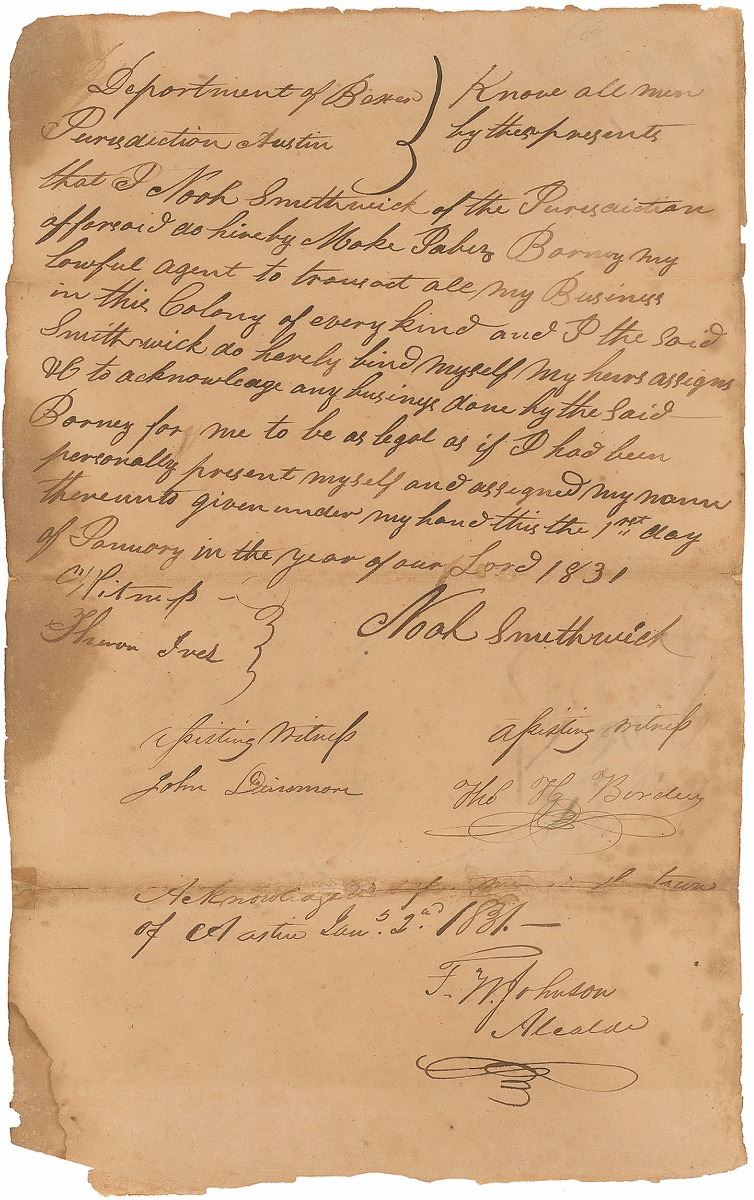 Department of Bexar } Know all men
Jurisdiction Austin } by these presents
that I Noah Smithwick of the Jurisdiction
afforsaid do hireby Make Jabez Borney my
lawful agent to transact all my Business
in this Colony of every kind and I the said
Smithwick do hereby bind myself my heirs assigns
&C to acknowledge any business done by the said
Borney for me to be as legal as if I had been
personally present myself and assigned my name
thereunto given under my hand this the 1rst day
of January in the year of our Lord 1831
Witness
Noah Smithwick
Ives
assisting Witness
assisting witness
John Dinsmore
Tho H Borden
Acknowledged me town
of Austin Jany 2nd 1831. —
F. W. Johnson
Alcalde